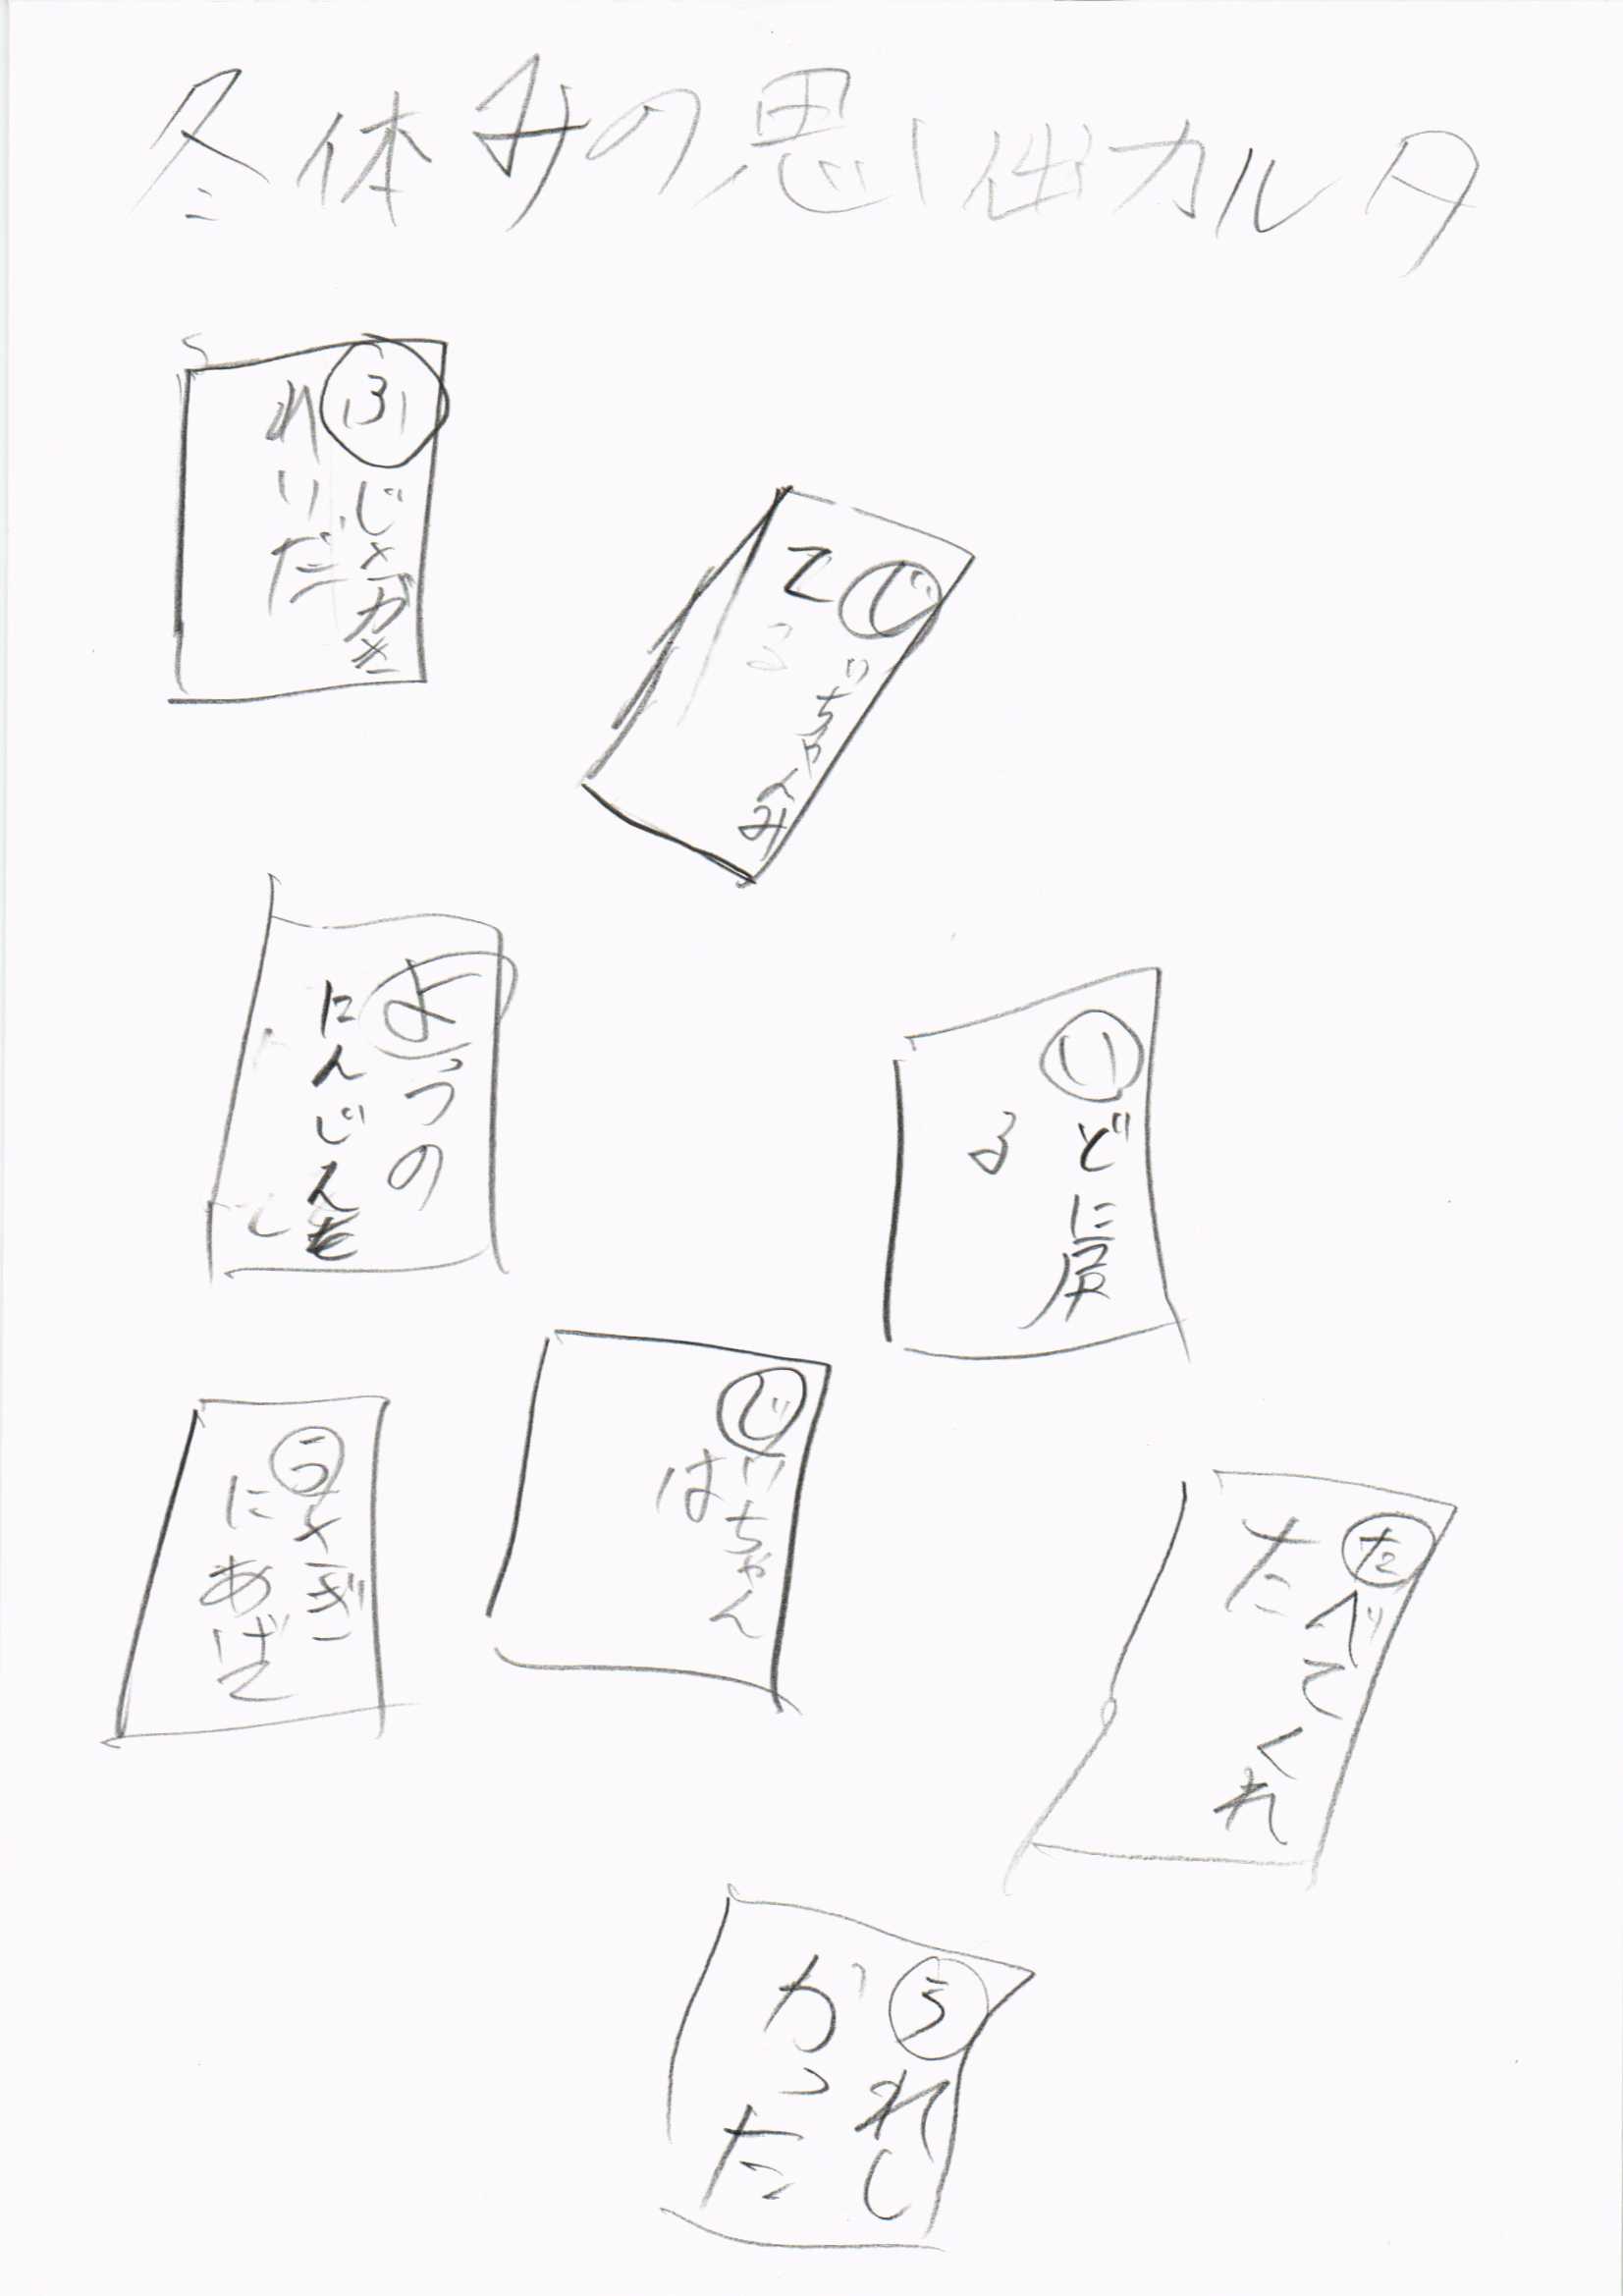 冬休みの思い出カルタ
ふじさんがき
れいだ
じいちゃんみ
てる
よっつの
にんじんを
いどに戻
る
うさぎ
にあげて
じいちゃん
は
たべてくれ
た
うれし
かった